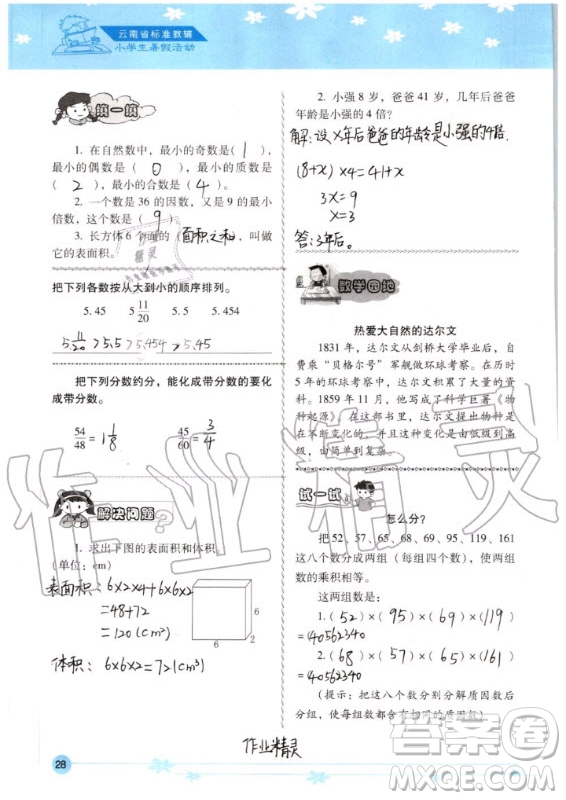 云南省标准教辅
小学生暑假活动
练一练
1. 在自然数中，最小的奇数是( 1 )，
最小的偶数是( 0 )，最小的质数是
( 2 )，最小的合数是( 4 )。
2. 一个数是 36 的因数，又是 9 的最小
倍数，这个数是( 9 )。
3. 长方体 6 个面的(面积之和)，叫做
它的表面积。
把下列各数按从大到小的顺序排列。
5.45 5 11/20 5.5 5.454
5 11/20 > 5.5 > 5.454 > 5.45
把下列分数约分，能化成带分数的要化
成带分数。
54/48 = 1 1/8 45/60 = 3/4
解决问题
1. 求出下图的表面积和体积。
(单位：cm)
表面积：6×2×4+6×6×2
=48+72
=120(cm²)
6
6
2
体积：6×6×2=72(cm³)
2. 小强 8 岁，爸爸 41 岁，几年后爸爸
年龄是小强的 4 倍？
解：设x年后爸爸的年龄是小强的4倍.
(8+x)×4=41+x
3x=9
x=3
答：3年后。
数学园地
热爱大自然的达尔文
1831 年，达尔文从剑桥大学毕业后，自
费乘“贝格尔号”军舰做环球考察。在历时
5 年的环球考察中，达尔文积累了大量的资
料。1859 年 11 月，他写成了科学巨著《物种
起源》。在这部书里，达尔文提出物种
在不断变化的，并且这种变化是由低级到高
级，由简单到复杂。
试一试
怎么分？
把 52、57、65、68、69、95、119、161
这八个数分成两组（每组四个数），使两组
数的乘积相等。
这两组数是：
1. ( 52 )×( 95 )×( 69 )×( 119 )
=40562340
2. ( 68 )×( 57 )×( 65 )×( 161 )
=40562340
(提示：把这八个数分别分解质因数后
分组，使每组都含有相同的质因数)
作业精灵
28
作业精灵
答案圈